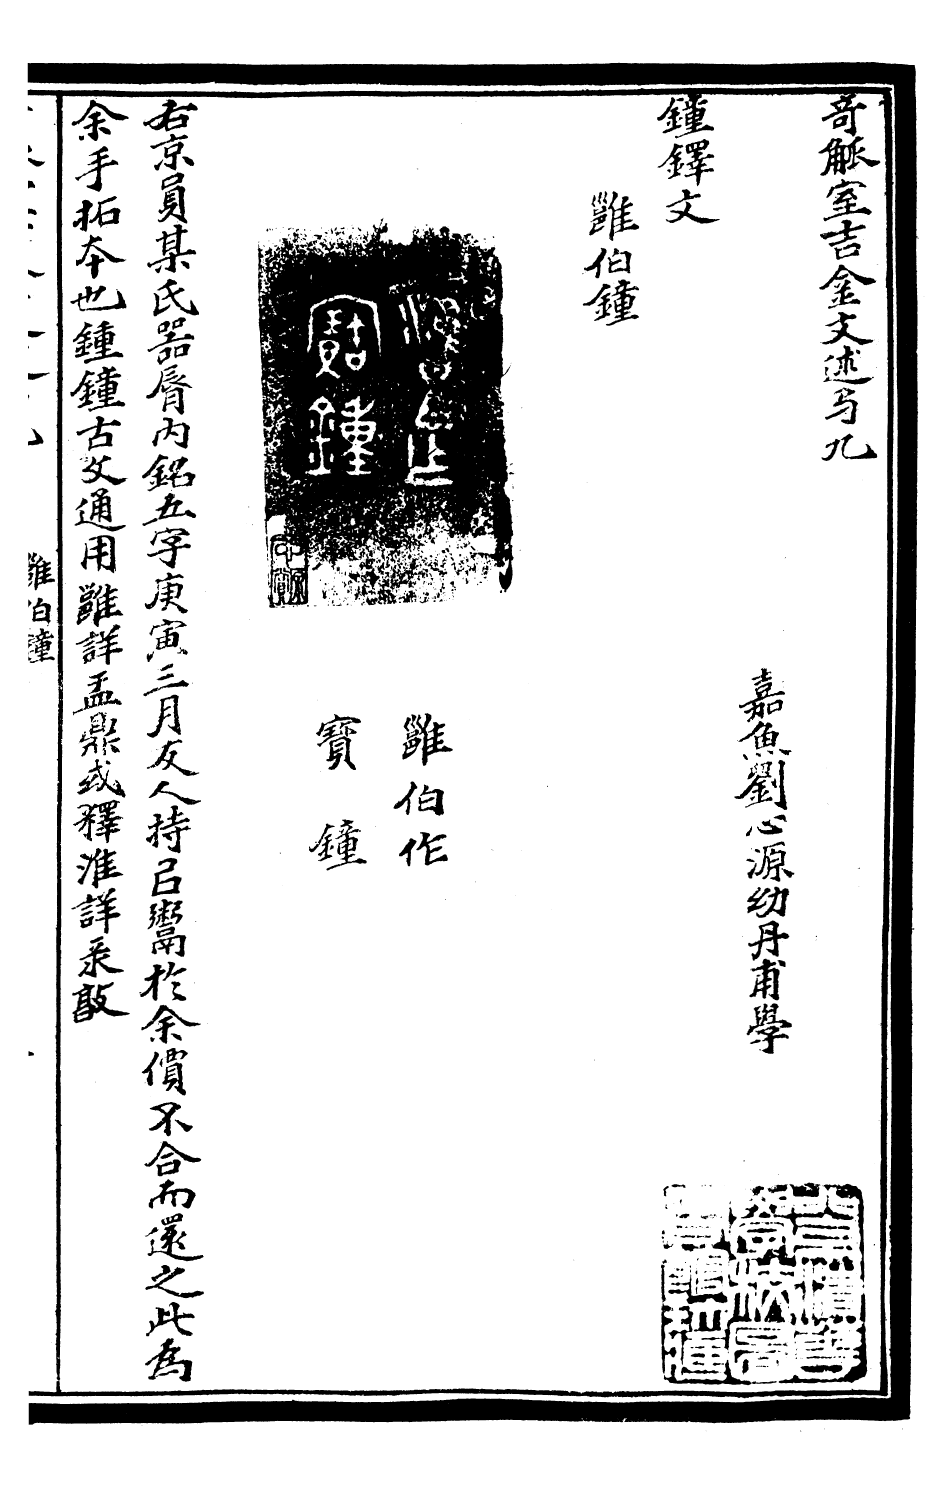 奇觚室吉金文述弓九
嘉魚劉心源幼丹甫學
鐘鐸文
雝伯鐘
雝伯作
寶鐘
右京員某氏器脣內銘五字庚寅三月友人持㠯鬻於余價不合而還之此爲
余手拓本也鍾鐘古文通用雝詳盂鼎或釋淮詳彔𣪘
雝伯鐘